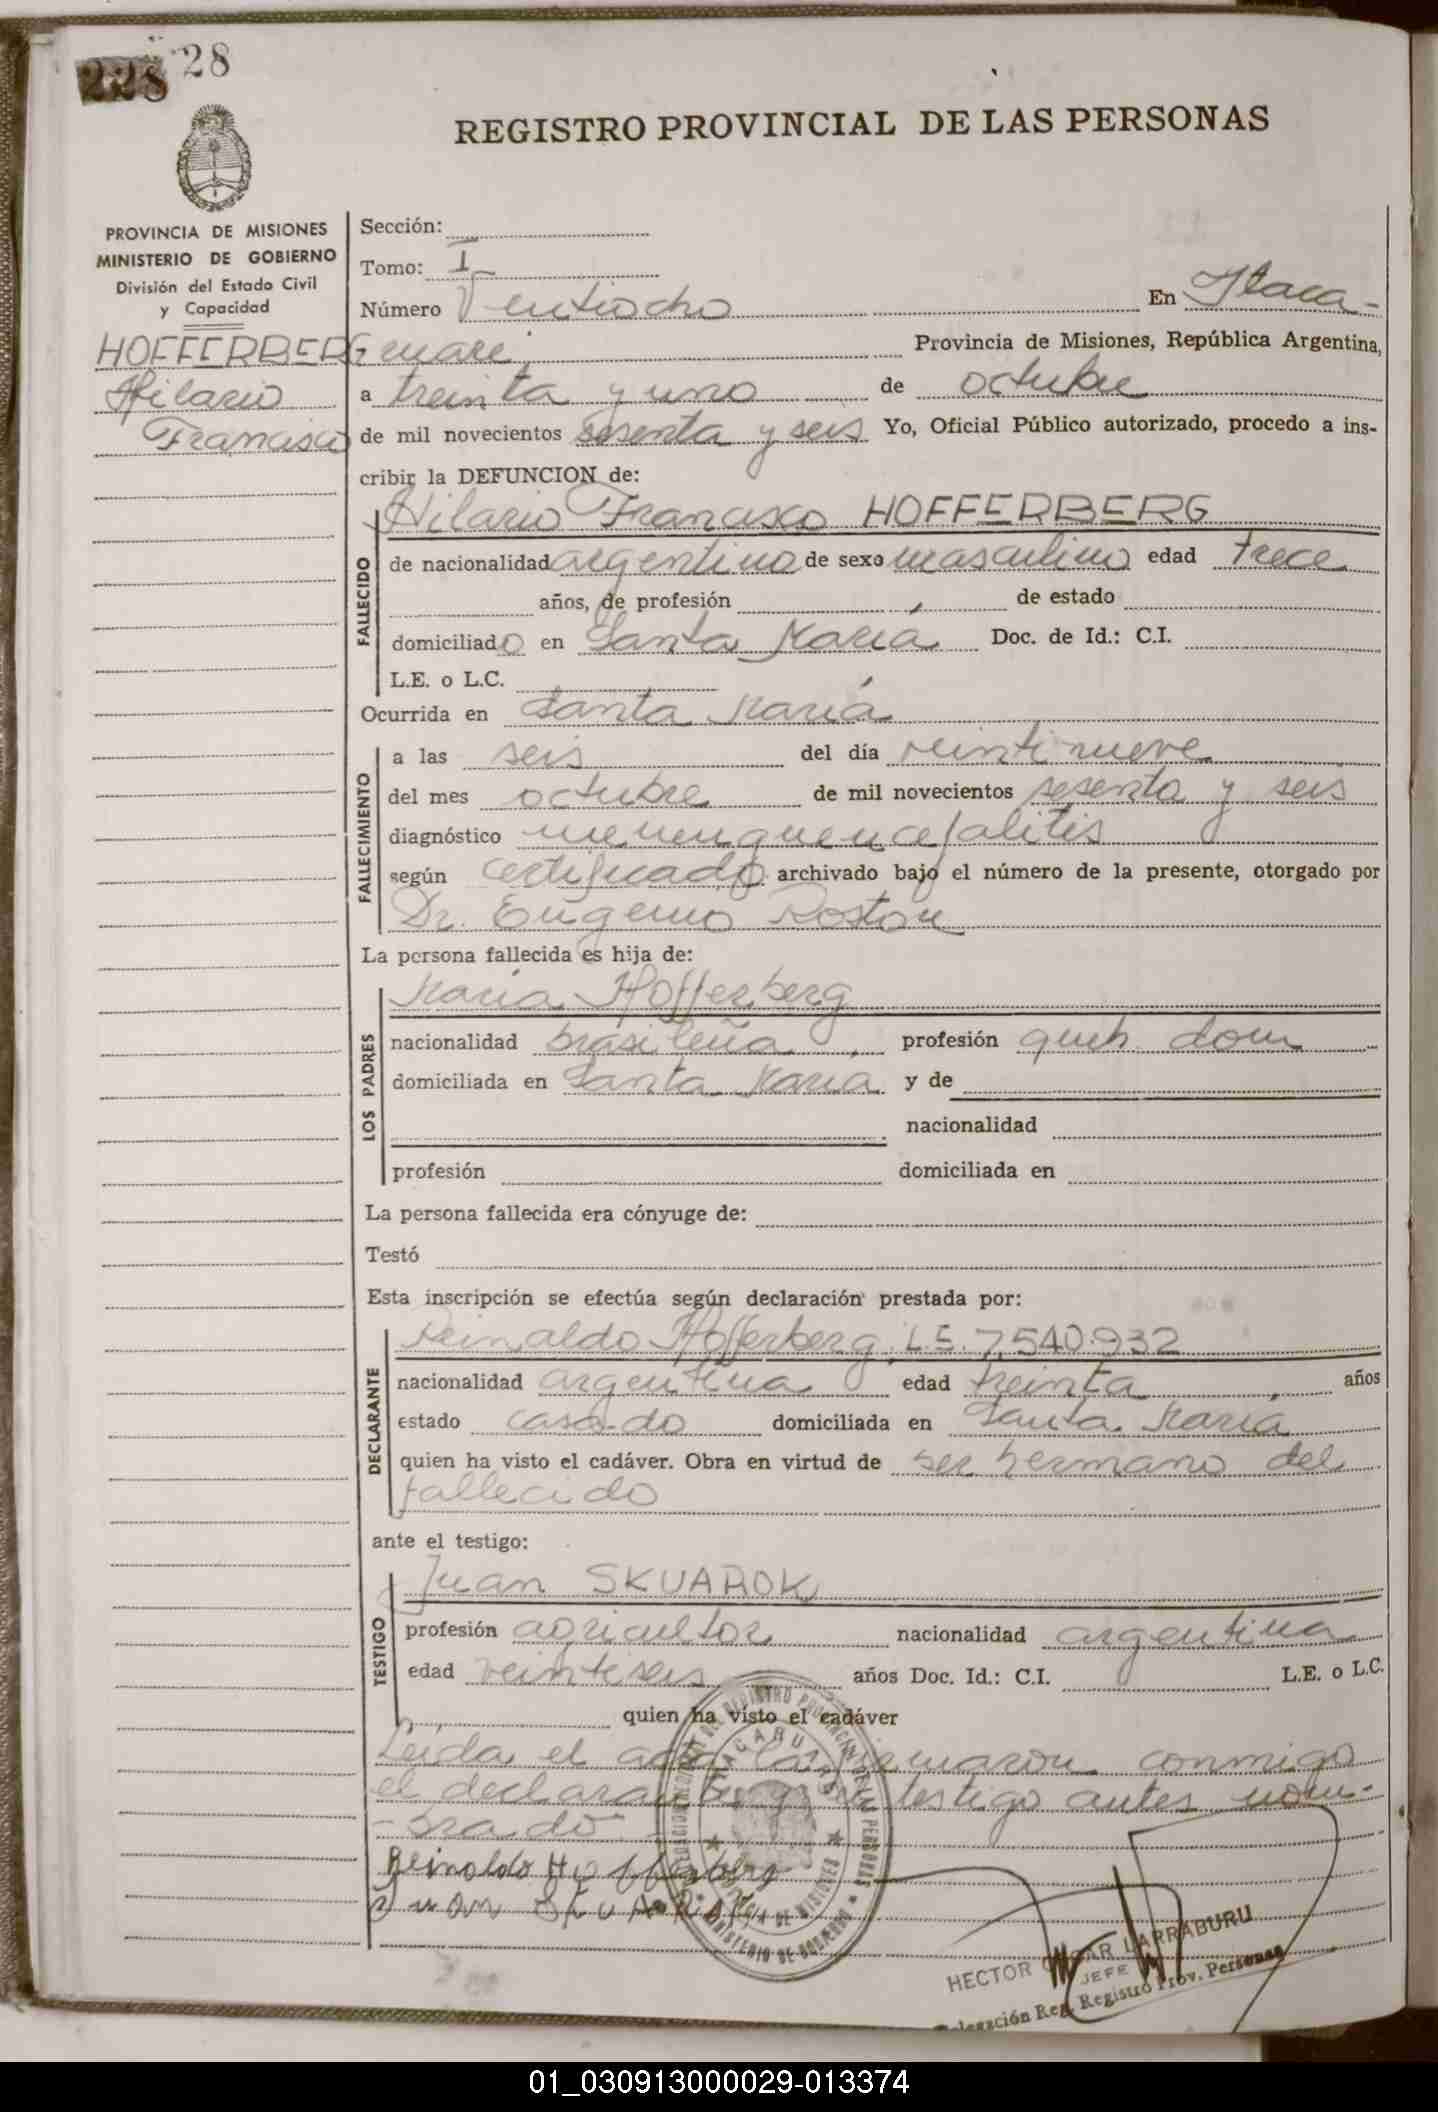 228 28
REGISTRO PROVINCIAL DE LAS PERSONAS
PROVINCIA DE MISIONES
MINISTERIO DE GOBIERNO
División del Estado Civil
y Capacidad
HOFFERBERG
Hilario
Francisco
Sección:
Tomo: I
Número Ventiocho En Itaca-
ruaré Provincia de Misiones, República Argentina,
a treinta y uno de octubre
de mil novecientos sesenta y seis Yo, Oficial Público autorizado, procedo a ins-
cribir la DEFUNCION de:
FALLECIDO
Hilario Francisco HOFFERBERG
de nacionalidad argentina de sexo masculino edad trece
años, de profesión de estado
domiciliado en Santa María Doc. de Id.: C.I.
L.E. o L.C.
Ocurrida en Santa María
FALLECIMIENTO
a las seis del día veintinueve
del mes octubre de mil novecientos sesenta y seis
diagnóstico meninguencefalitis
según certificado archivado bajo el número de la presente, otorgado por
Dr. Eugenio Roston
La persona fallecida es hija de:
LOS PADRES
María Hofferberg
nacionalidad brasileña profesión queh. dom
domiciliada en Santa María y de
nacionalidad
profesión domiciliada en
La persona fallecida era cónyuge de:
Testó
Esta inscripción se efectúa según declaración prestada por:
DECLARANTE
Reinaldo Hofferberg L.E. 7.540.932
nacionalidad argentina edad treinta años
estado casado domiciliada en Santa María
quien ha visto el cadáver. Obra en virtud de ser hermano del
fallecido
ante el testigo:
TESTIGO
Juan SKUAROK
profesión agricultor nacionalidad argentina
edad veintiseis años Doc. Id.: C.I. L.E. o L.C.
quien ha visto el cadáver
Leída el acta la firmaron conmigo
el declarante y el testigo antes nom-
brado
Reinoldo Hofferberg
Juan SKUAROK
HECTOR OSCAR LARRABURU
JEFE
Delegación Reg. Registro Prov. Personas
01_030913000029-013374